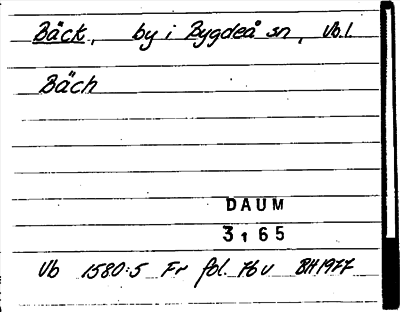 Bäck, by i Bygdeå sn, Vb.l.
Bäch
DAUM
3165
Vb 1580:5 Fr fol. 76v BH1977